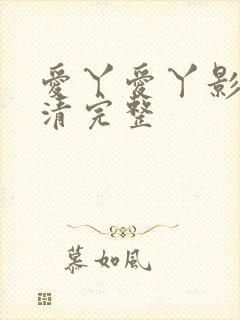 愛丫愛丫影
清完整
慕如風